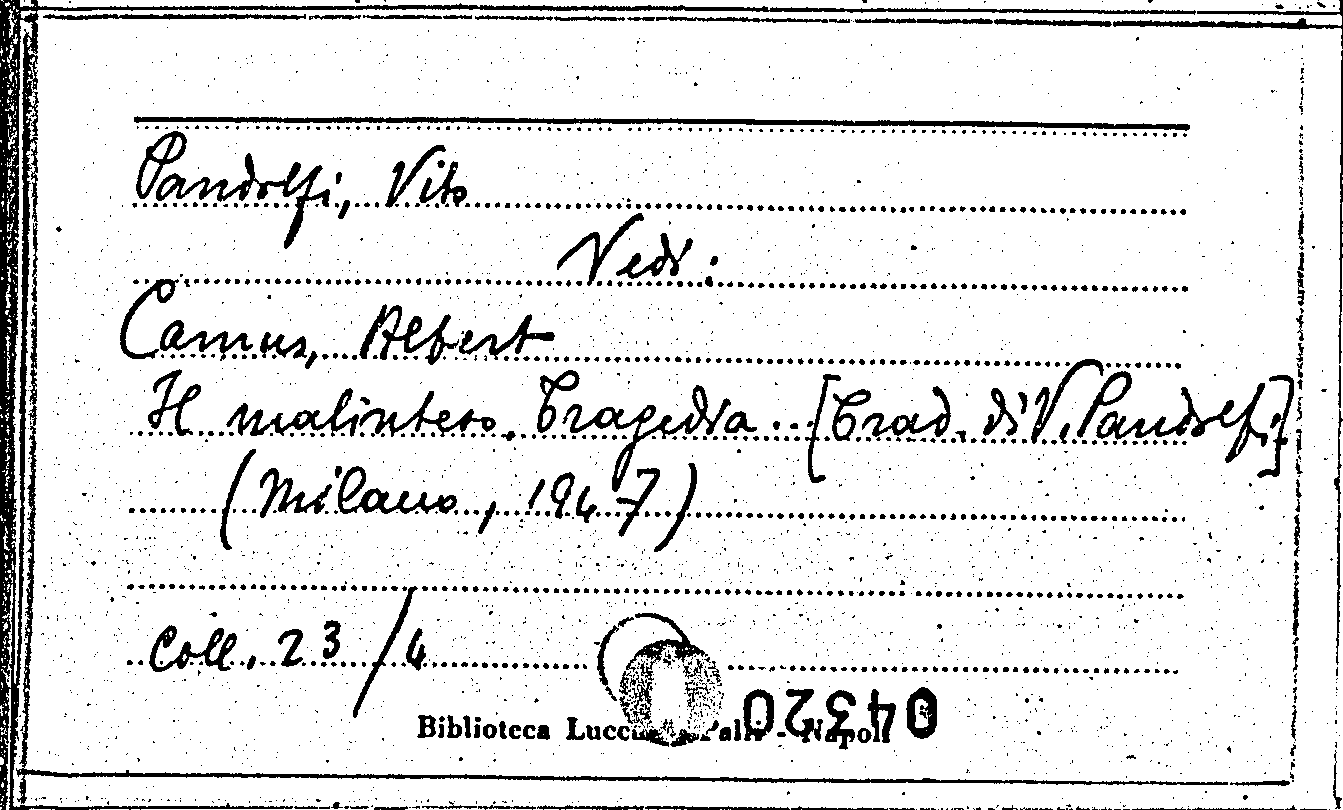 Pandolfi, Vito
Vedi:
Camus, Albert
Il malinteso. Tragedia.. [Trad. di V. Pandolfi]
(Milano, 1947)
Coll. 23/4
04320
Biblioteca Palli - Napoli